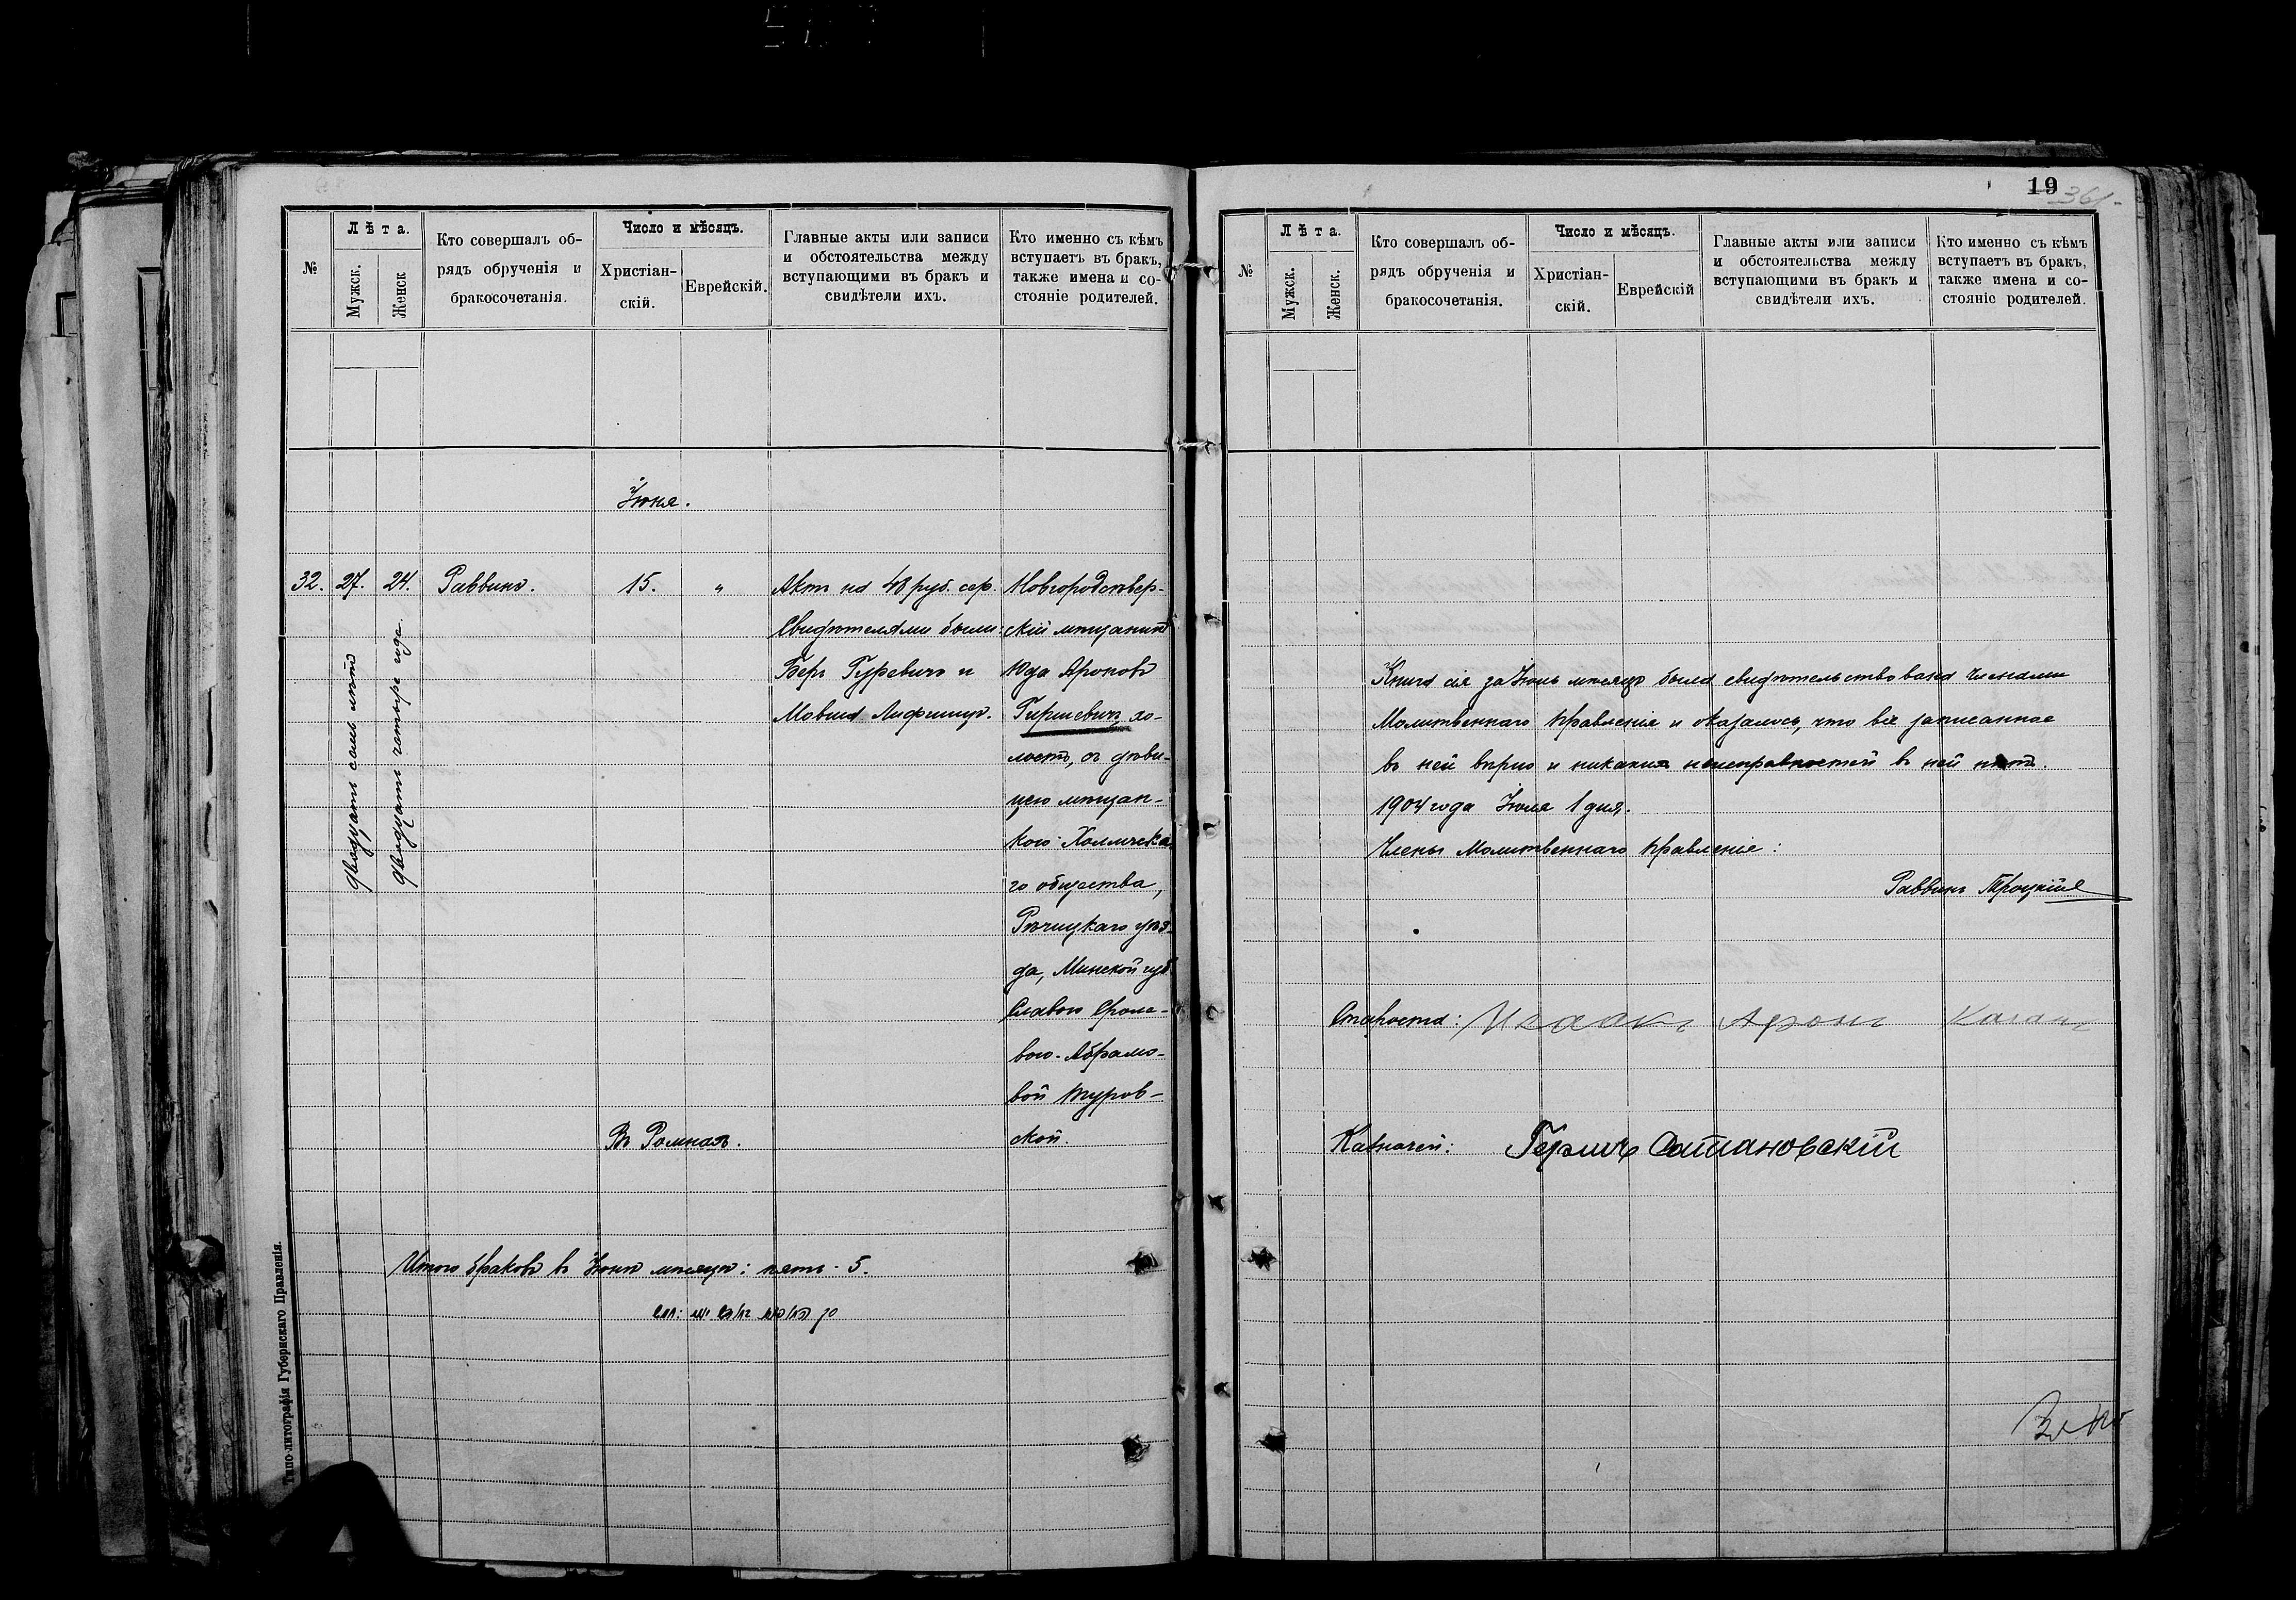 №
Лѣта.
Мужск.
Женск
Кто совершалъ об-
рядъ обрученія и
бракосочетанія.
Число и мѣсяцъ.
Христіан-
скій.
Еврейскій.
Главные акты или записи
и обстоятельства между
вступающими въ бракъ и
свидѣтели ихъ.
Кто именно съ кѣмъ
вступаетъ въ бракъ,
также имена и со-
стояніе родителей.
Іюня.
32. 27. 24. Раввинъ. 15. „
двадцать семь лѣтъ
двадцать четыре года.
Актъ на 48 руб. сер.
Свидѣтелями были:
Беръ Гуревичъ и
Мовша Лифшицъ.
Новгородсѣвер-
скій мѣщанинъ
Юда Ароновъ
Гиршевичъ хо-
лостъ, съ дѣви-
цею мѣщан-
кою Холмечска
го общества,
Рѣчицкаго уѣз-
да, Минской губ.
Славою Фроме-
вою Абрамо-
вой Туров-
ской.
Въ Ромнахъ.
Итого браковъ въ Іюнѣ мѣсяцѣ: пять - 5.
Типо-литографія Губернскаго Правленія.
19
361
№
Лѣта.
Мужск.
Женск.
Кто совершалъ об-
рядъ обрученія и
бракосочетанія.
Число и мѣсяцъ.
Христіан-
скій.
Еврейскій
Главные акты или записи
и обстоятельства между
вступающими въ бракъ и
свидѣтели ихъ.
Кто именно съ кѣмъ
вступаетъ въ бракъ,
также имена и со-
стояніе родителей.
Книга сія за Іюнь мѣсяцъ была свидѣтельствована Членами
Молитвеннаго Правленія и оказалось, что все записанное
въ ней вѣрно и никакихъ неисправностей въ ней нѣтъ.
1904 года Іюля 1 дня.
Члены Молитвеннаго Правленія:
Раввинъ Троцкій
Староста: Исаакъ Аронъ Каганъ
Казначей: Гершъ Сатановскій